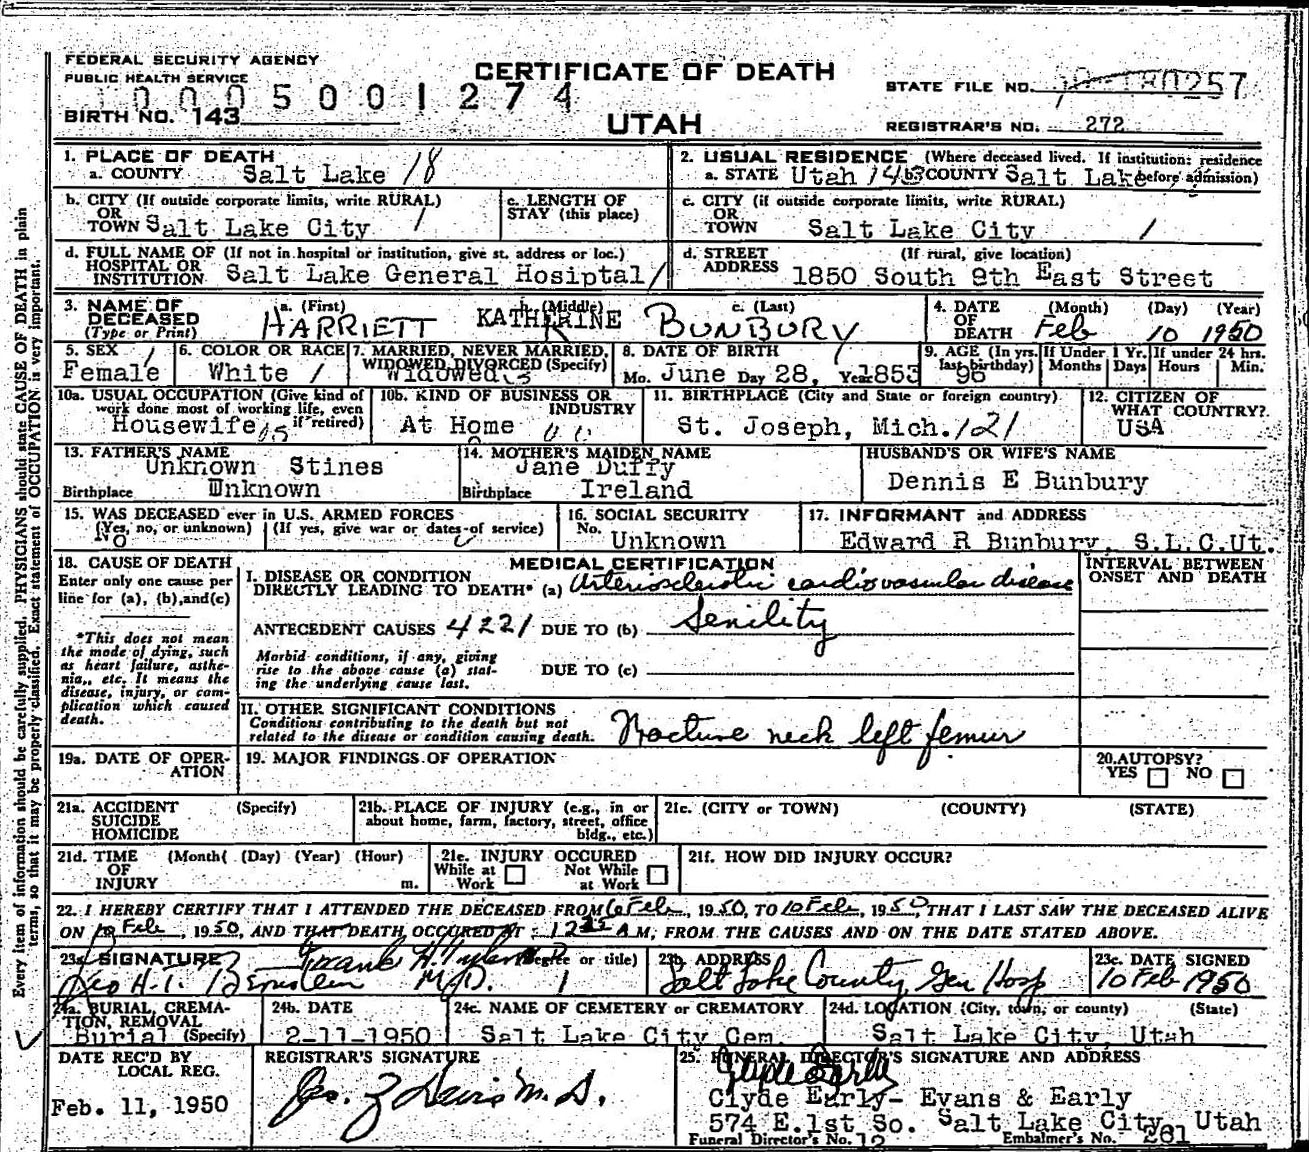 FEDERAL SECURITY AGENCY
PUBLIC HEALTH SERVICE
CERTIFICATE OF DEATH
UTAH
STATE FILE NO.
REGISTRAR'S NO. 272
10005001274
BIRTH NO. 143
1. PLACE OF DEATH
a. COUNTY Salt Lake 18
2. USUAL RESIDENCE (Where deceased lived. If institution: residence before admission)
a. STATE Utah 143 b. COUNTY Salt Lake
b. CITY (If outside corporate limits, write RURAL)
OR
TOWN Salt Lake City 1
c. LENGTH OF
STAY (this place)
c. CITY (if outside corporate limits, write RURAL)
OR
TOWN Salt Lake City 1
d. FULL NAME OF (If not in hospital or institution, give st. address or loc.)
HOSPITAL OR
INSTITUTION Salt Lake General Hosiptal 1
d. STREET (If rural, give location)
ADDRESS 1850 South 8th East Street
3. NAME OF DECEASED (Type or Print)
a. (First) b. (Middle) c. (Last)
HARRIETT KATHRINE BUNBURY
4. DATE OF DEATH (Month) (Day) (Year)
Feb 10 1950
5. SEX 1
Female
6. COLOR OR RACE
White 1
7. MARRIED, NEVER MARRIED,
WIDOWED, DIVORCED (Specify)
Widowed 3
8. DATE OF BIRTH
Mo. June Day 28, Year 1853
9. AGE (In yrs. last birthday) 96
If Under 1 Yr. Months Days
If under 24 hrs. Hours Min.
10a. USUAL OCCUPATION (Give kind of
work done most of working life, even
if retired)
Housewife
10b. KIND OF BUSINESS OR
INDUSTRY
At Home
11. BIRTHPLACE (City and State or foreign country)
St. Joseph, Mich. 121
12. CITIZEN OF
WHAT COUNTRY?
USA
13. FATHER'S NAME
Unknown Stines
Birthplace Unknown
14. MOTHER'S MAIDEN NAME
Jane Duffy
Birthplace Ireland
HUSBAND'S OR WIFE'S NAME
Dennis E Bunbury
15. WAS DECEASED ever in U.S. ARMED FORCES
(Yes, no, or unknown) (If yes, give war or dates of service)
No
16. SOCIAL SECURITY
No. Unknown
17. INFORMANT and ADDRESS
Edward R Bunbury, S.L.C.Ut.
18. CAUSE OF DEATH
Enter only one cause per
line for (a), (b), and (c)
*This does not mean
the mode of dying, such
as heart failure, asthe-
nia, etc. It means the
disease, injury, or com-
plication which caused
death.
MEDICAL CERTIFICATION
I. DISEASE OR CONDITION
DIRECTLY LEADING TO DEATH* (a) Arteriosclerotic cardiovascular disease
ANTECEDENT CAUSES 4221 DUE TO (b) Senility
Morbid conditions, if any, giving
rise to the above cause (a) stat-
ing the underlying cause last.
DUE TO (c)
II. OTHER SIGNIFICANT CONDITIONS
Conditions contributing to the death but not
related to the disease or condition causing death.
Fracture neck left femur
INTERVAL BETWEEN
ONSET AND DEATH
19a. DATE OF OPER-
ATION
19. MAJOR FINDINGS OF OPERATION
20. AUTOPSY?
YES NO
21a. ACCIDENT (Specify)
SUICIDE
HOMICIDE
21b. PLACE OF INJURY (e.g., in or
about home, farm, factory, street, office
bldg., etc.)
21c. (CITY or TOWN) (COUNTY) (STATE)
21d. TIME (Month( (Day) (Year) (Hour)
OF
INJURY m.
21e. INJURY OCCURED
While at Work Not While at Work
21f. HOW DID INJURY OCCUR?
22. I HEREBY CERTIFY THAT I ATTENDED THE DECEASED FROM 6 Feb, 1950, TO 10 Feb, 1950, THAT I LAST SAW THE DECEASED ALIVE
ON 10 Feb, 1950, AND THAT DEATH OCCURED AT 12 A M, FROM THE CAUSES AND ON THE DATE STATED ABOVE.
23a. SIGNATURE (Degree or title)
Frank H. Tyler
Leo H.T. Bernstein M.D. 1
23b. ADDRESS
Salt Lake County Gen Hosp
23c. DATE SIGNED
10 Feb 1950
24a. BURIAL, CREMA-
TION, REMOVAL
Burial (Specify)
24b. DATE
2-11-1950
24c. NAME OF CEMETERY or CREMATORY
Salt Lake City Cem.
24d. LOCATION (City, town, or county) (State)
Salt Lake City, Utah
DATE REC'D BY
LOCAL REG.
Feb. 11, 1950
REGISTRAR'S SIGNATURE
25. FUNERAL DIRECTOR'S SIGNATURE AND ADDRESS
Clyde Early
Clyde Early- Evans & Early
574 E.1st So. Salt Lake City, Utah
Funeral Director's No. 12 Embalmer's No. 261
Every item of information should be carefully supplied. PHYSICIANS should state CAUSE OF DEATH in plain
terms, so that it may be properly classified. Exact statement of OCCUPATION is very important.